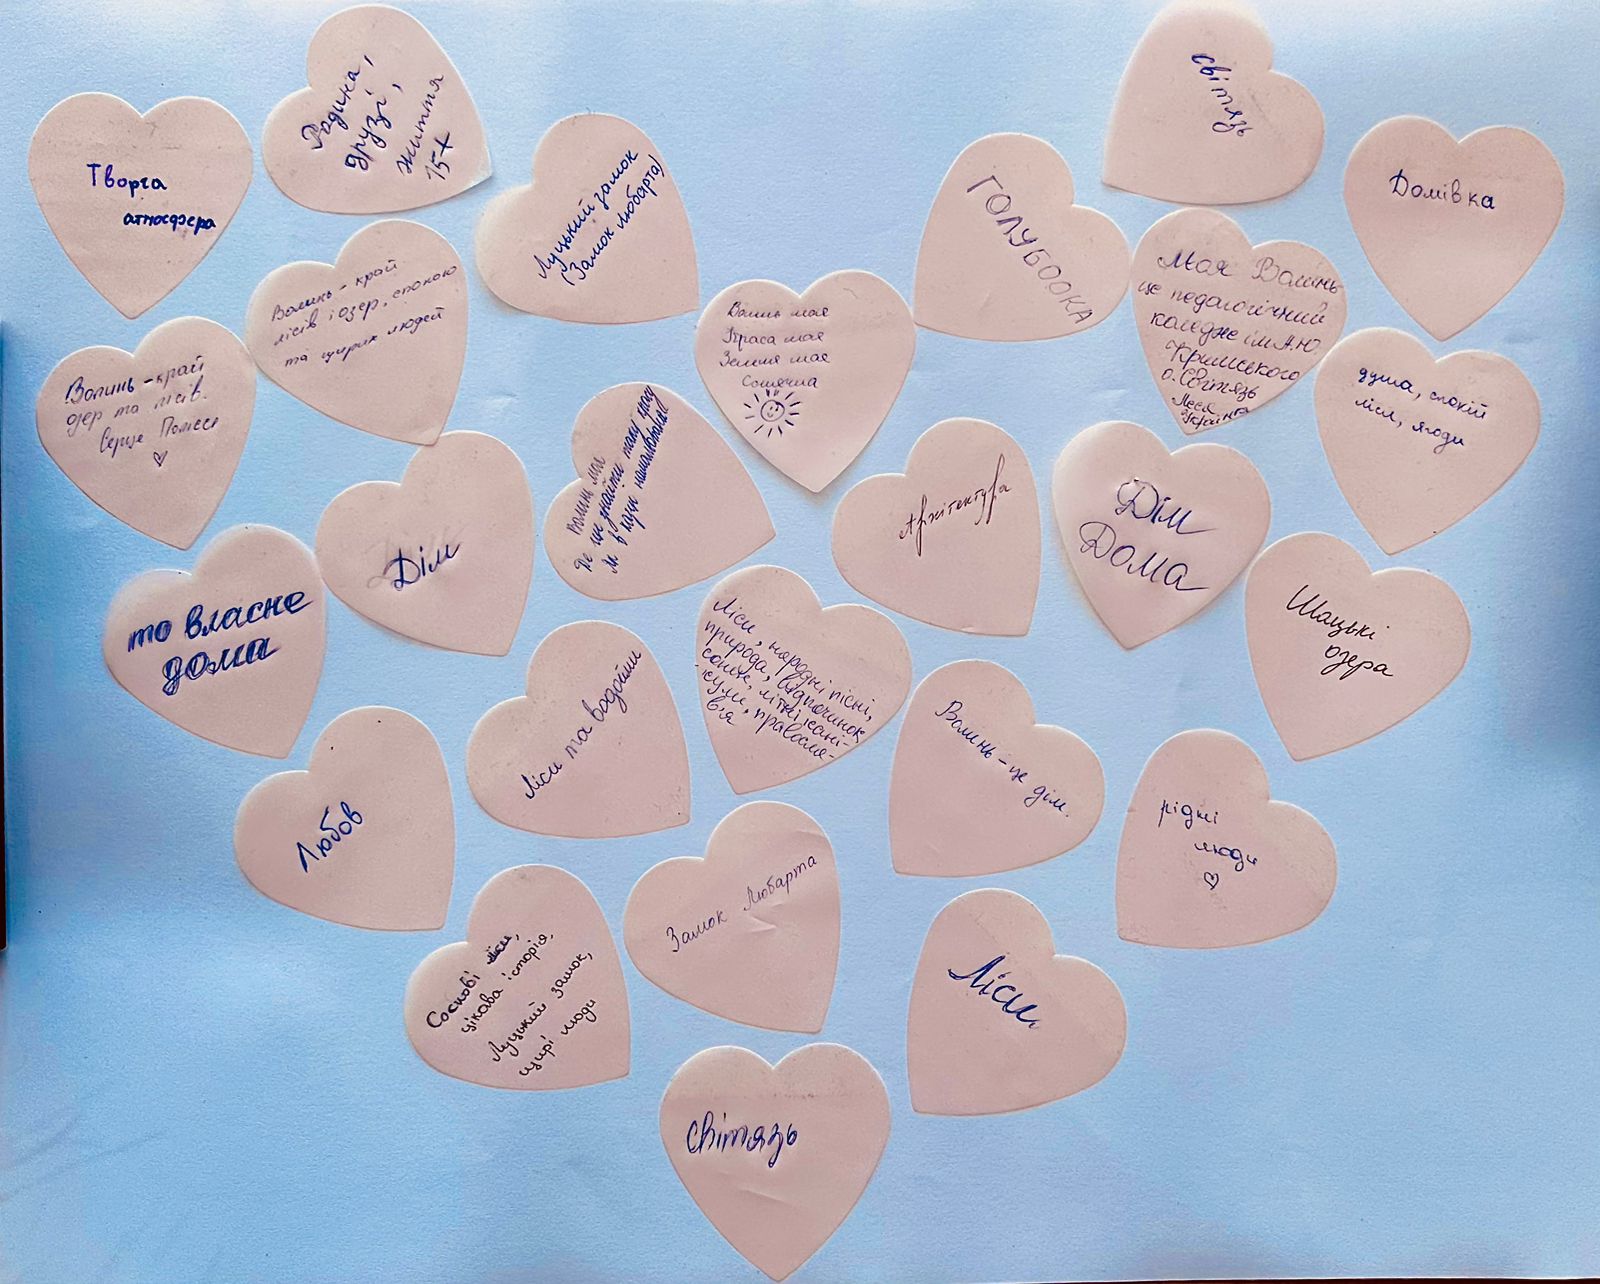 Творча
атмосфера
Родина,
друзі,
життя
15+
Луцький замок
(Замок Любарта)
Світязь
ГОЛУБООКА
Домівка
Волинь - край
лісів і озер, спокою
та щирих людей
Волинь моя
Краса моя
Земля моя
Сонячна
Моя Волинь-
це педагогічний
коледж ім.А.Ю.
Кримського
о.Світязь
Леся
Українка
Волинь - край
озер та лісів.
Серце Полісся
душа, спокій
ліси, ягоди
Волинь моя
Де ще знайти таку красу
Дім
Архітектура
Дім
Дома
то власне
дома
Ліси та водойми
Ліси, народні пісні,
природа, відпочинок,
сонце, літні кані-
кули, правосла-
в'я
Шацькі
озера
Любов
Волинь - це дім.
рідні
люди
Замок Любарта
Соснові ліси,
цікава історія,
Луцький замок,
щирі люди
Ліси
Світязь